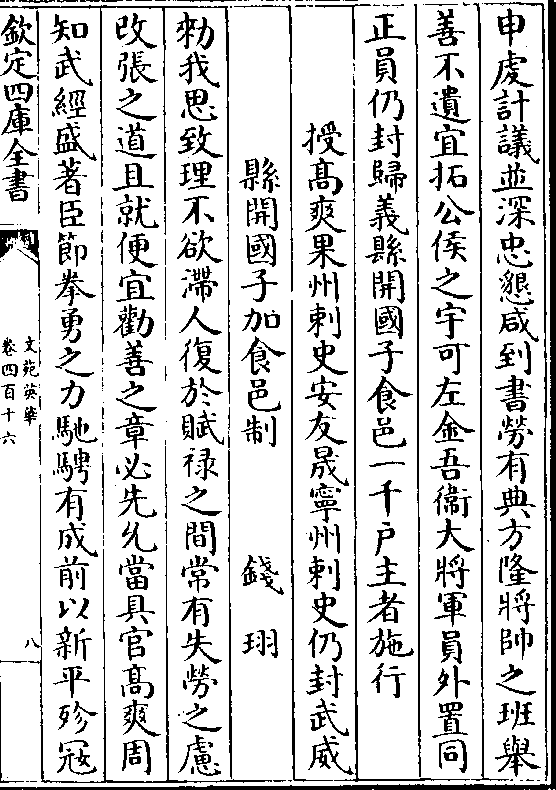 申虔計議並深忠懇咸到書勞有典方隆將帥之班舉
善不遺宜拓公侯之宇可左金吾衞大將軍員外置同
正員仍封歸義縣開國子食邑一千户主者施行
授髙爽果州刺史安友晟寧州刺史仍封武威
縣開國子加食邑制 錢珝
勑我思致理不欲滯人復於賦禄之間常有失勞之慮
改張之道且就便宜勸善之章必先允當具官髙爽周
知武經盛著臣節拳勇之力馳騁有成前以新平殄寇
欽定四庫全書
文苑英華
卷四百十六
八